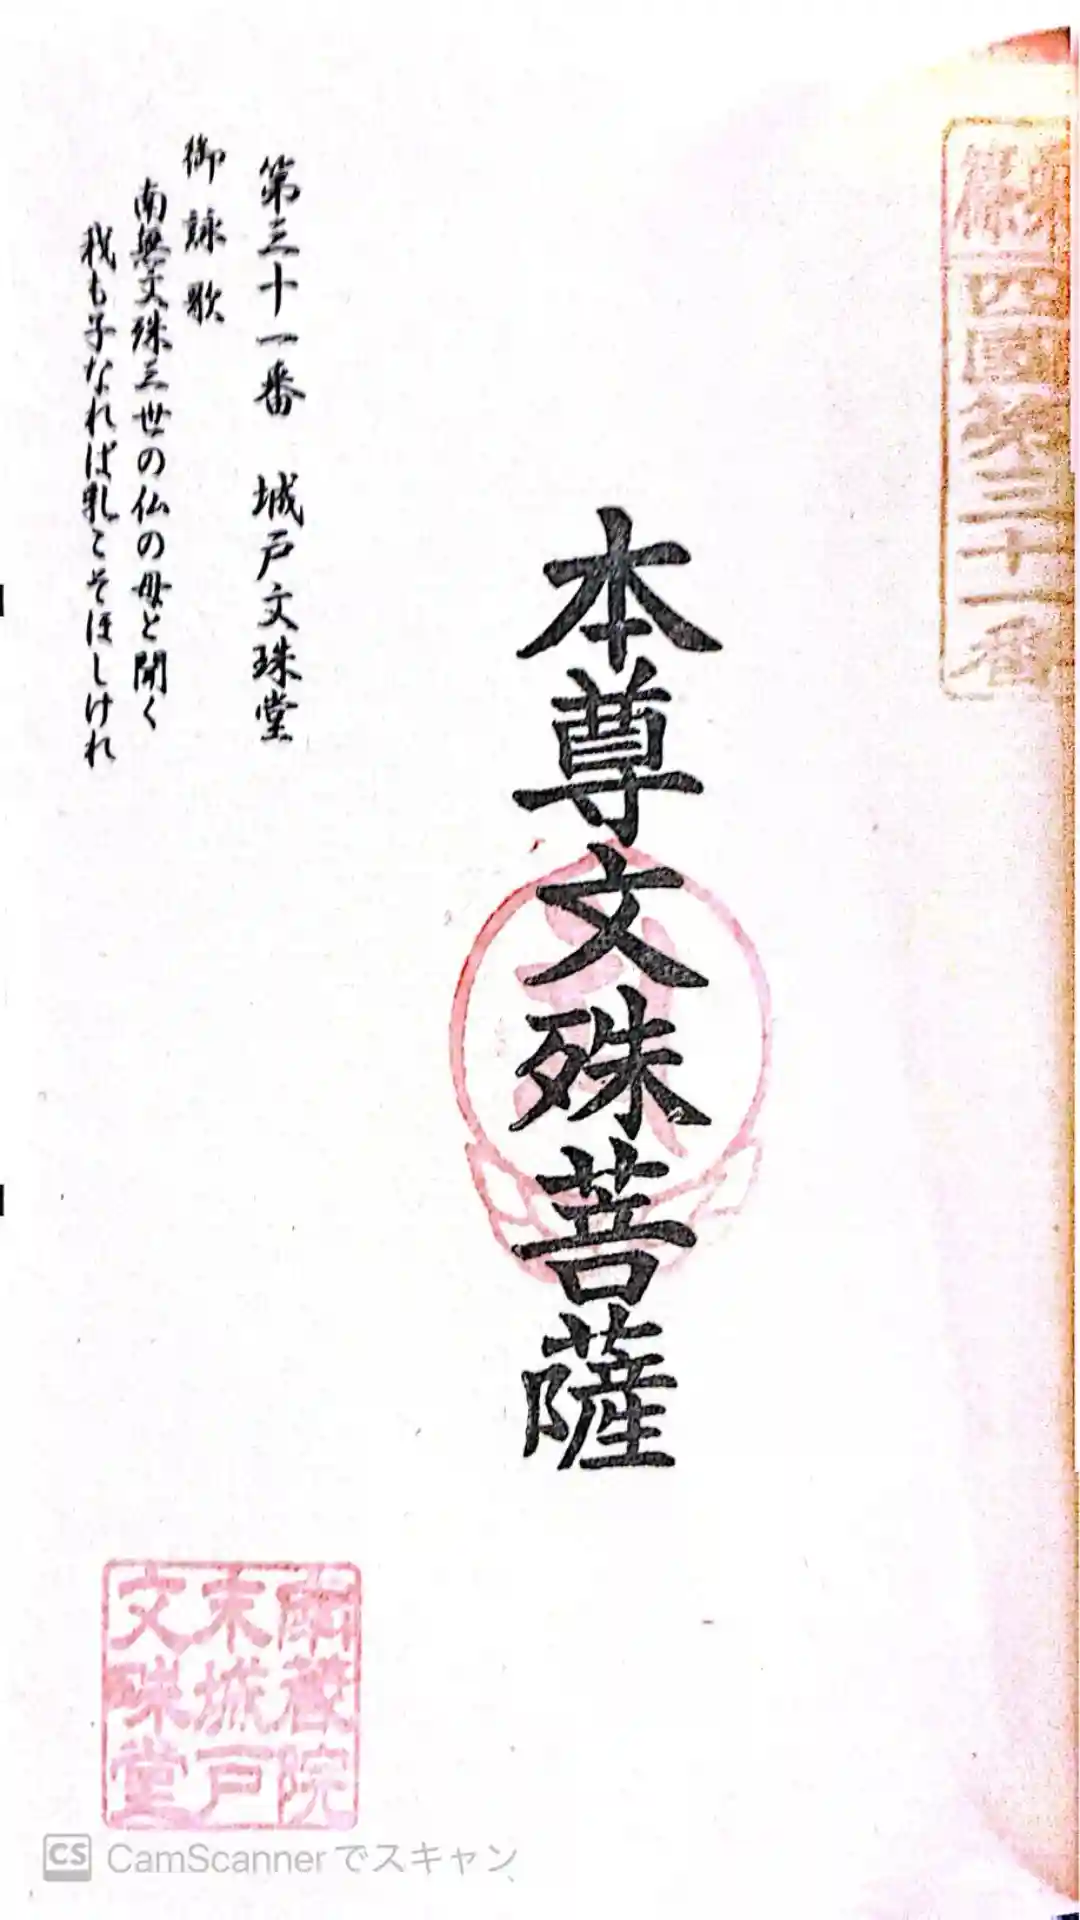 四國第三十一番
本尊文殊菩薩
第三十一番 城戸文珠堂
御詠歌
南無文殊三世の仏の母と聞く
我も子なれば乳こそほしけれ
蔵院
末城戸
文殊堂
CS CamScannerでスキャン